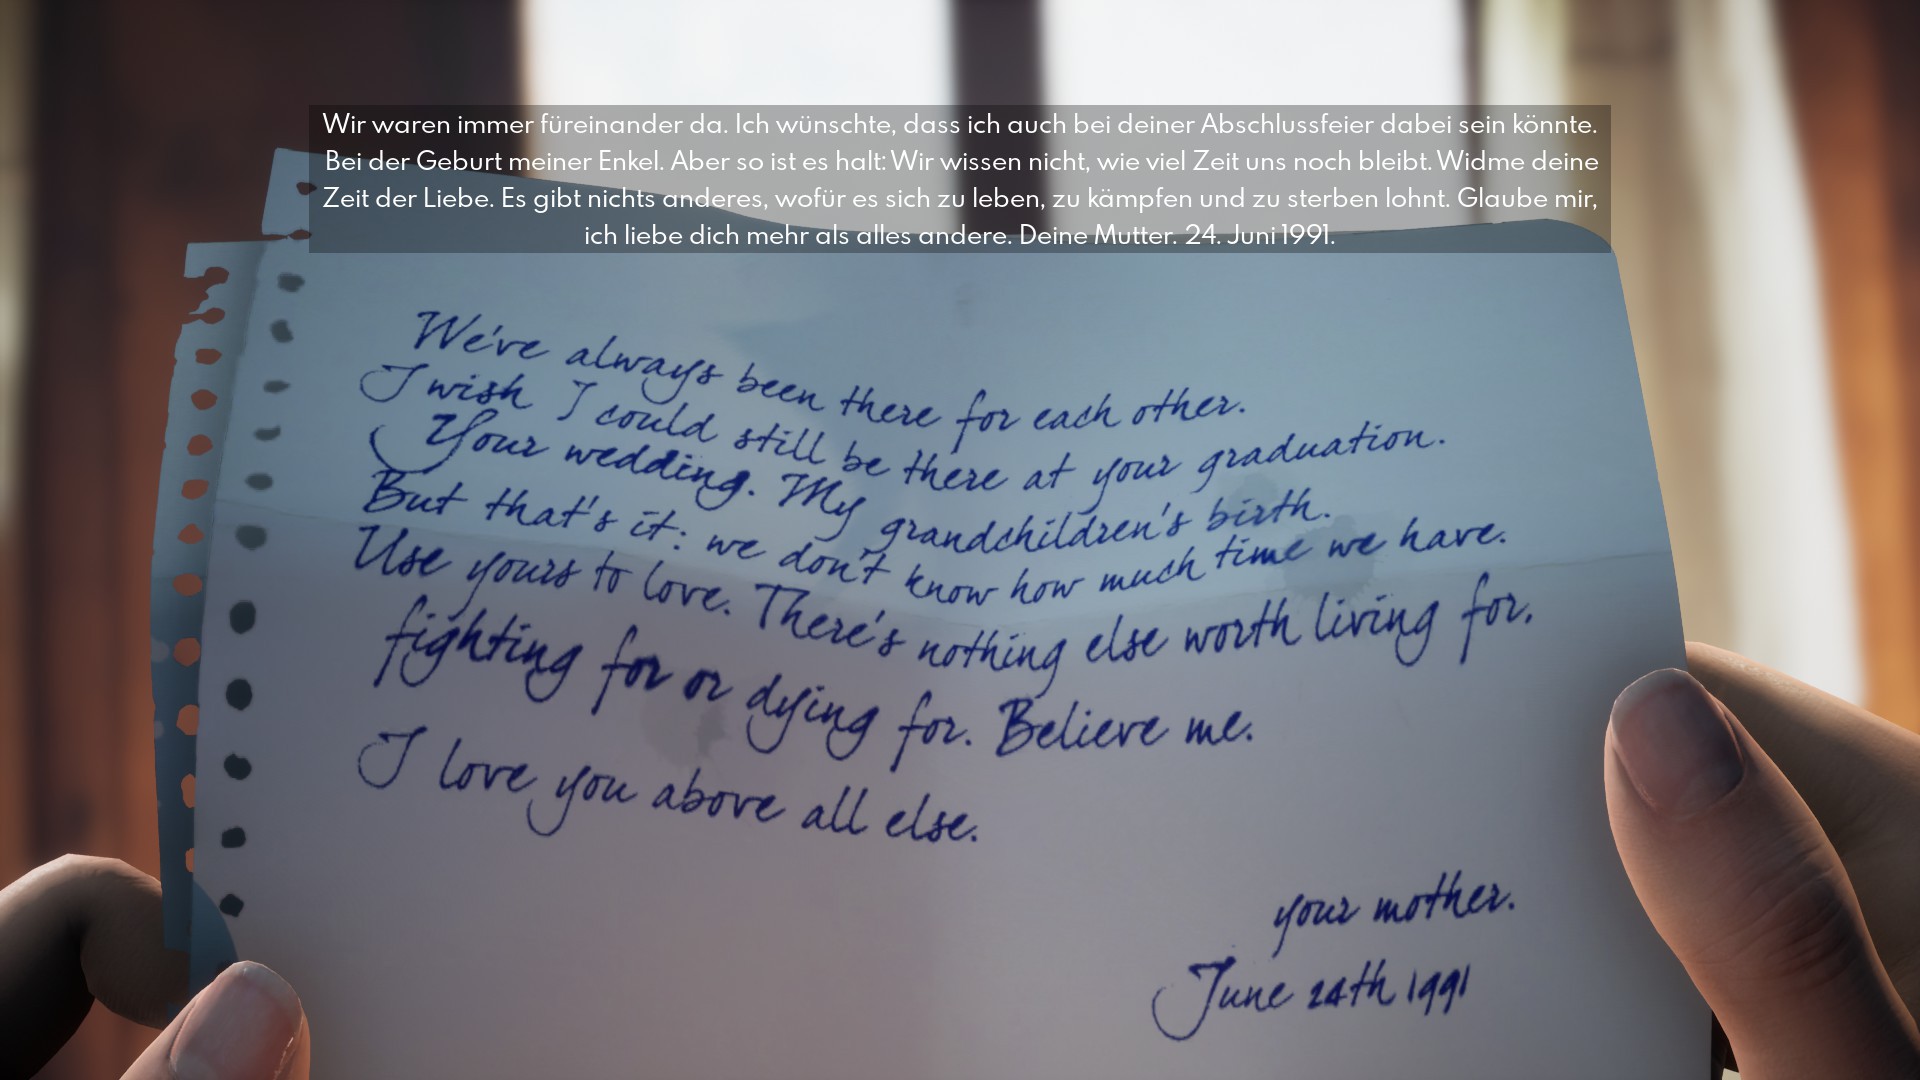 Wir waren immer füreinander da. Ich wünschte, dass ich auch bei deiner Abschlussfeier dabei sein könnte.
Bei der Geburt meiner Enkel. Aber so ist es halt: Wir wissen nicht, wie viel Zeit uns noch bleibt. Widme deine
Zeit der Liebe. Es gibt nichts anderes, wofür es sich zu leben, zu kämpfen und zu sterben lohnt. Glaube mir,
ich liebe dich mehr als alles andere. Deine Mutter. 24. Juni 1991.
We've always been there for each other.
I wish I could still be there at your graduation.
Your wedding. My grandchildren's birth.
But that's it: we don't know how much time we have.
Use yours to love. There's nothing else worth living for,
fighting for or dying for. Believe me.
I love you above all else.
your mother.
June 24th 1991